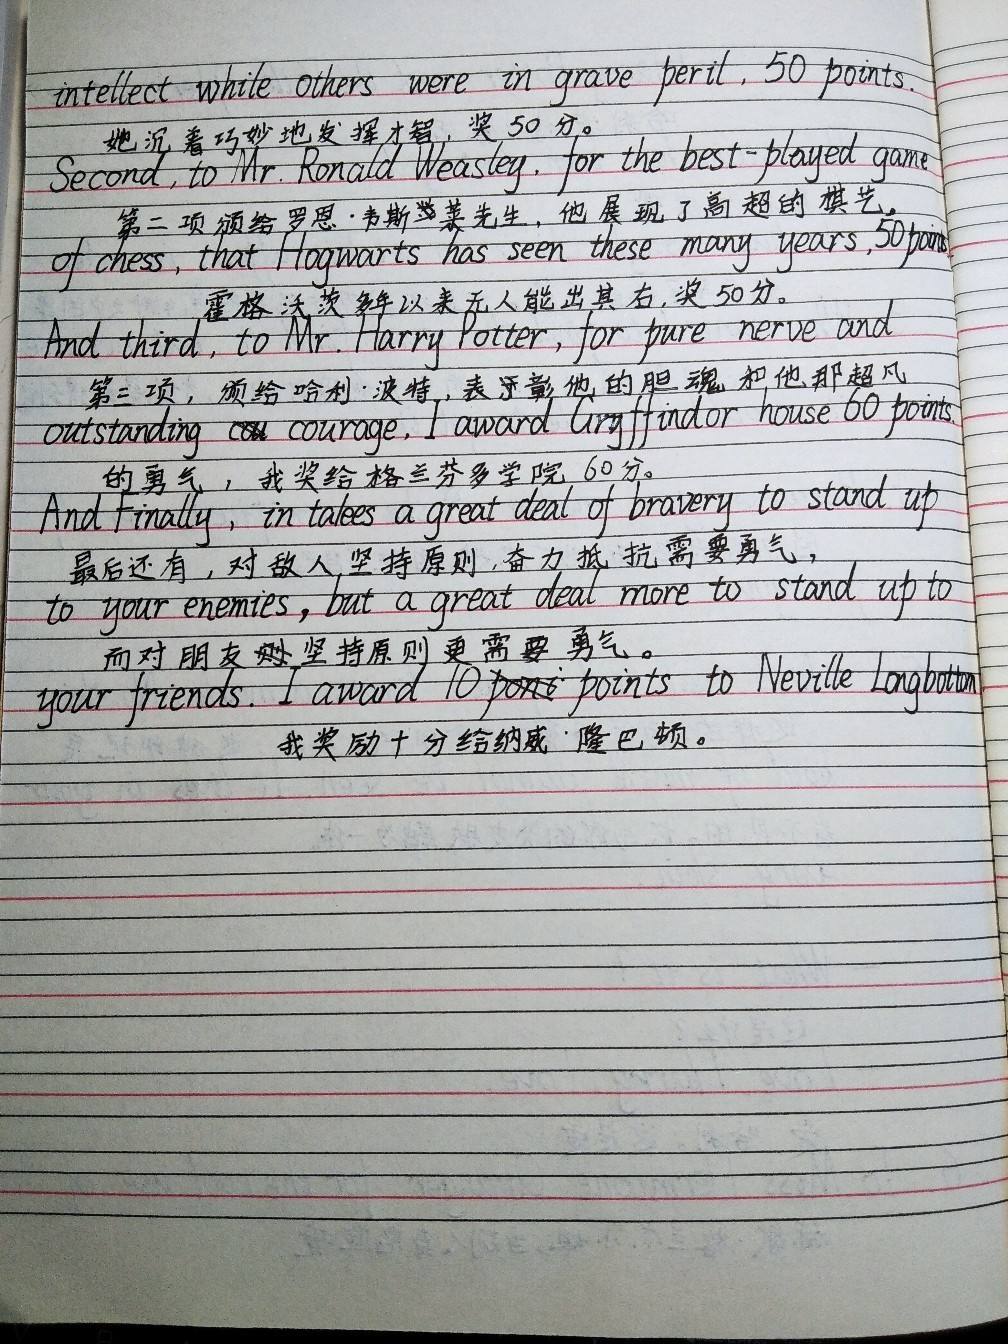 intellect while others were in grave peril, 50 points.
她沉着巧妙地发挥才智，奖50分。
Second, to Mr. Ronald Weasley, for the best-played game
第二项颁给罗恩·韦斯莱先生，他展现了高超的棋艺。
of chess, that Hogwarts has seen these many years, 50 points
霍格沃茨多年以来无人能出其右，奖50分。
And third, to Mr. Harry Potter, for pure nerve and
第三项，颁给哈利·波特，表示彰他的胆魂和他那超凡
outstanding courage, I award Gryffindor house 60 points.
的勇气，我奖给格兰芬多学院60分。
And Finally, in takes a great deal of bravery to stand up
最后还有，对敌人坚持原则，奋力抵抗需要勇气，
to your enemies, but a great deal more to stand up to
而对朋友坚持原则更需要勇气。
your friends. I award 10 points to Neville Longbottom
我奖励十分给纳威·隆巴顿。